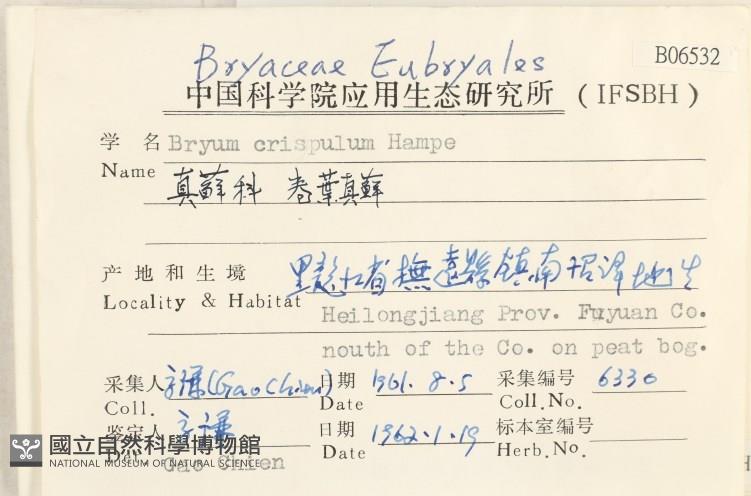 Bryaceae Eubryales
B06532
中国科学院应用生态研究所 (IFSBH)
学 名 Bryum crispulum Hampe
Name 真蘚科 卷葉真蘚
产地和生境 黑龍江省撫遠縣鎮南沼澤地上
Locality & Habitat Heilongjiang Prov. Fuyuan Co.
nouth of the Co. on peat bog.
采集人 高謙(Gao Chien) 日期 1961.8.5 采集编号 6330
Coll. Date Coll.No.
鉴定人 高謙 日期 1962.1.19 标本室编号
Det. Gao Chien Date Herb.No.
國立自然科學博物館
NATIONAL MUSEUM OF NATURAL SCIENCE